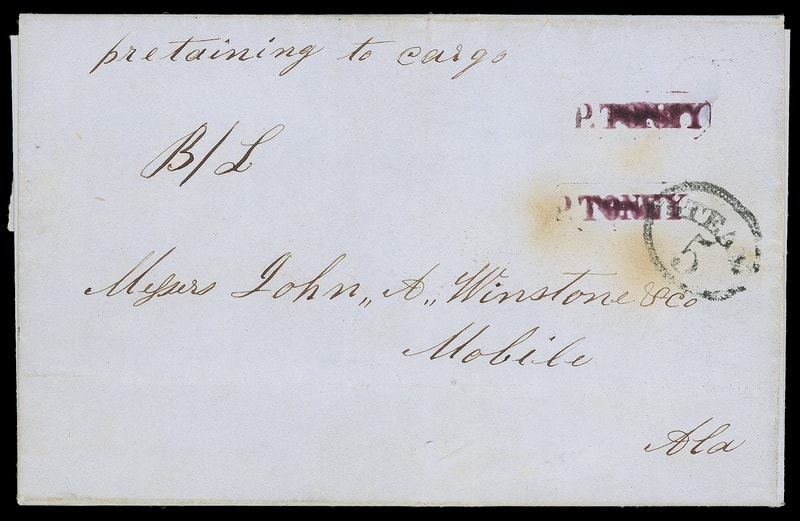 pretaining to cargo
P. TONEY
B/L
P. TONEY
STEAM
5
Messers John,, A,, Winstone &Co
Mobile
Ala